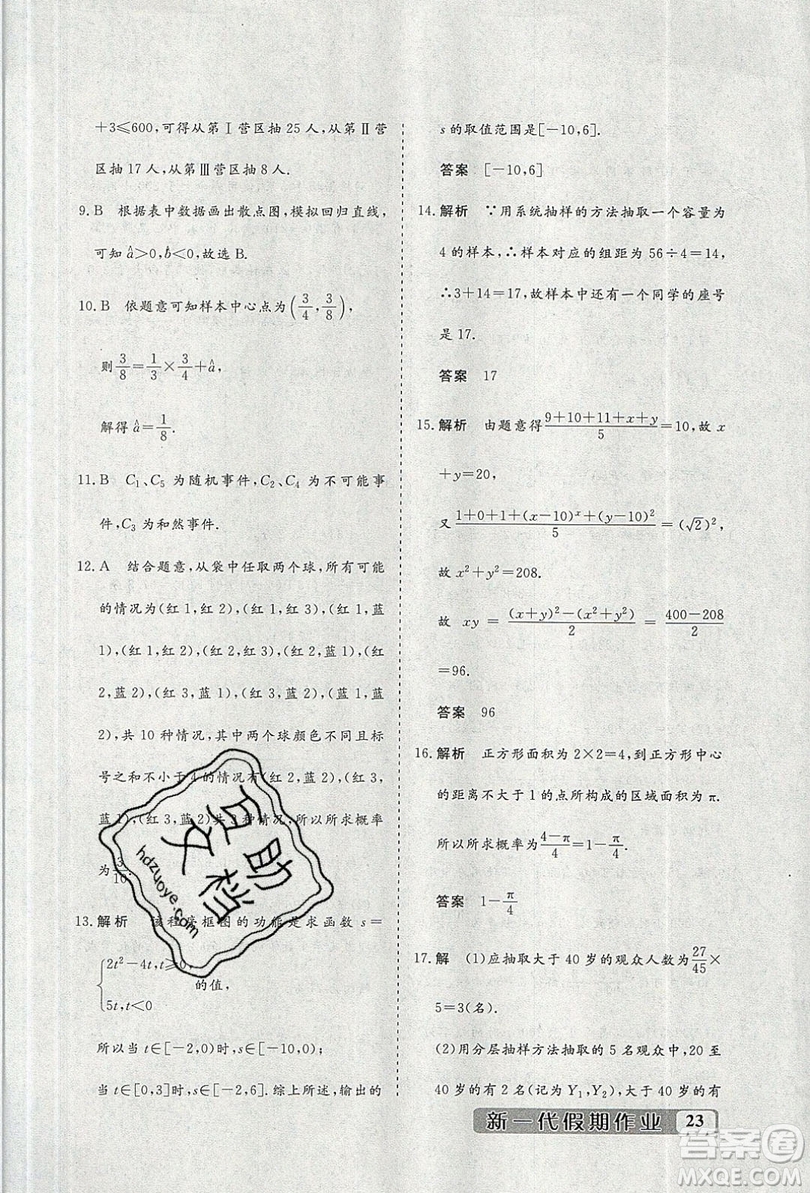 +3≤600,可得从第Ⅰ营区抽 25 人,从第Ⅱ营
区抽 17 人,从第Ⅲ营区抽 8 人.
9. B 根据表中数据画出散点图,模拟回归直线,
可知 â>0,b̂<0,故选 B.
10. B 依题意可知样本中心点为(3/4,3/8),
则 3/8=1/3×3/4+â,
解得 â=1/8.
11. B C₁、C₅ 为随机事件,C₂、C₄ 为不可能事
件,C₃ 为和然事件.
12. A 结合题意,从袋中任取两个球,所有可能
的情况为(红 1,红 2),(红 1,红 3),(红 1,蓝
1),(红 1,蓝 2),(红 2,红 3),(红 2,蓝 1),(红
2,蓝 2),(红 3,蓝 1),(红 3,蓝 2),(蓝 1,蓝
2),共 10 种情况,其中两个球颜色不同且标
号之和不小于 4 的情况有(红 2,蓝 2),(红 3,
蓝 1),(红 3,蓝 2)共 3 种情况,所以所求概率
为 3/10.
13. 解析 该程序框图的功能是求函数 s=
{2t²-4t,t≥0,
5t,t<0 的值,
所以当 t∈[-2,0)时,s∈[-10,0);
当 t∈[0,3]时,s∈[-2,6].综上所述,输出的
s 的取值范围是[-10,6].
答案 [-10,6]
14. 解析 ∵用系统抽样的方法抽取一个容量为
4 的样本,∴样本对应的组距为 56÷4=14,
∴3+14=17,故样本中还有一个同学的座号
是 17.
答案 17
15. 解析 由题意得(9+10+11+x+y)/5=10,故 x
+y=20,
又 (1+0+1+(x-10)ˣ+(y-10)²)/5=(√2)²,
故 x²+y²=208.
故 xy=((x+y)²-(x²+y²))/2=(400-208)/2
=96.
答案 96
16. 解析 正方形面积为 2×2=4,到正方形中心
的距离不大于 1 的点所构成的区域面积为 π.
所以所求概率为(4-π)/4=1-π/4.
答案 1-π/4
17. 解 (1)应抽取大于 40 岁的观众人数为 27/45×
5=3(名).
(2)用分层抽样方法抽取的 5 名观众中,20 至
40 岁的有 2 名(记为 Y₁,Y₂),大于 40 岁的有
新一代假期作业 23
互助
文档
hdzuoye.com
答案圈
MXQE.COM